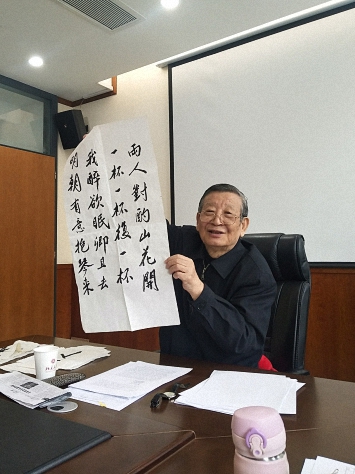 兩人對酌山花開
一杯一杯復一杯
我醉欲眠卿且去
明朝有意抱琴来